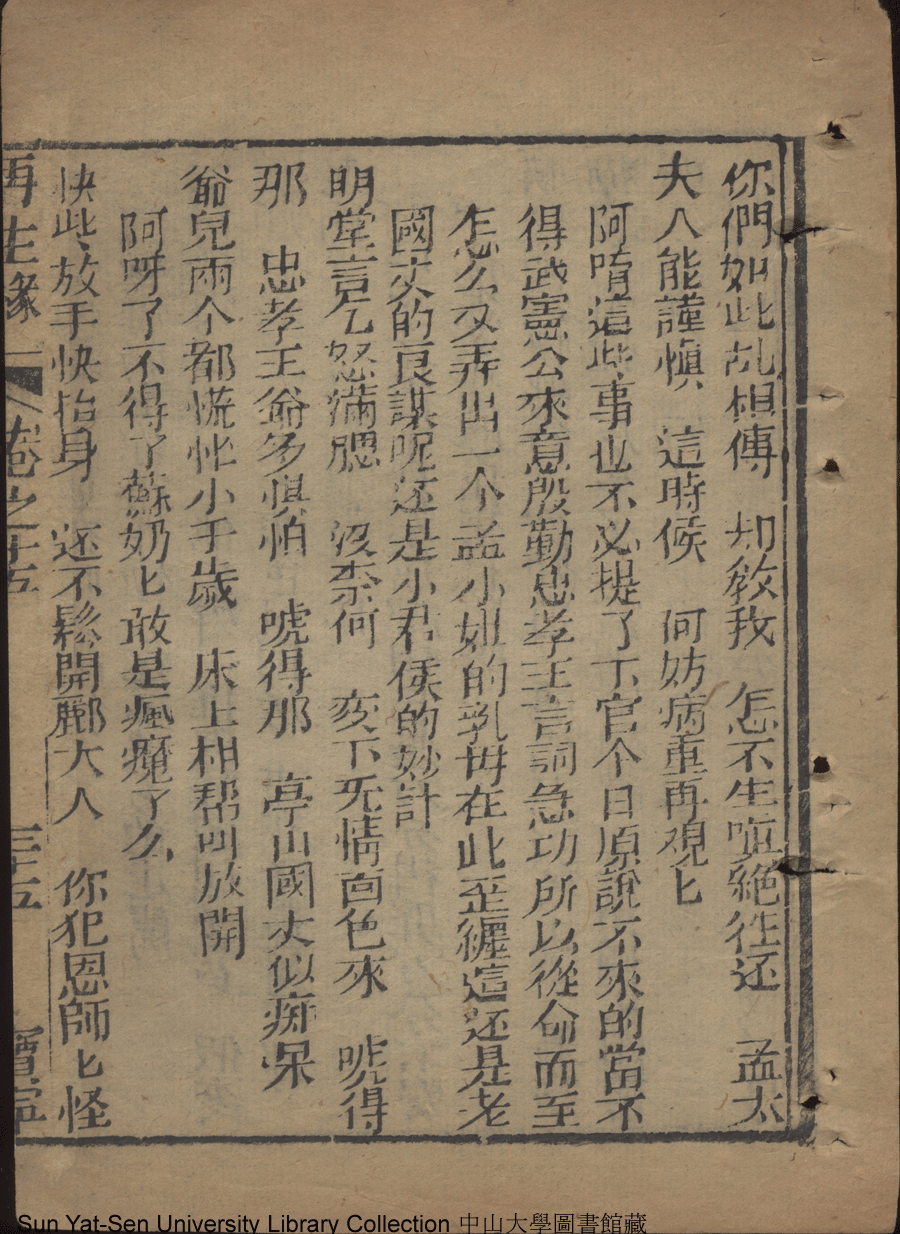 你們如此乱相傳　却教我　怎不生嗔絕徃还　孟太
夫人能謹慎　這時候　何妨病重再覌匕
阿唷這些事也不必提了下官今日原說不來的當不
得武憲公來意殷勤忠孝王言詞急功所以從命而至
怎么又弄出一个孟小姐的乳母在此歪纏這还是老
國丈的良謀呢还是小君侯的妙計
明堂言乞怒滿腮　沒柰何　変下无情面色來　唬得
那　忠孝王爺多惧怕　唬得那　亭山國丈似痴呆
爺兒兩个都慌忙小千歲　床上相帮叫放開
阿呀了不得了蘇奶匕敢是瘋癡了么
快些放手快抬身　还不鬆開酈大人　你犯恩師匕怪
再生緣　卷之十五　三十五　寶寧
Sun Yat-Sen University Library Collection 中山大學圖書館藏